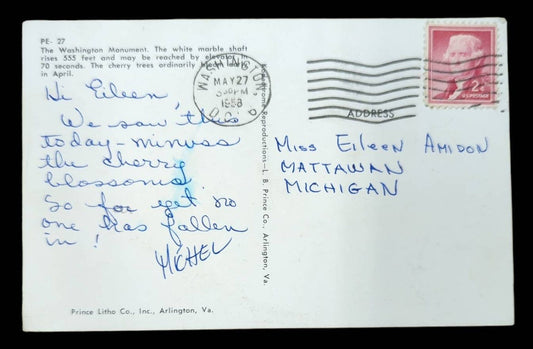 PE- 27
The Washington Monument. The white marble shaft
rises 555 feet and may be reached by elevator in
70 seconds. The cherry trees ordinarily bloom
in April.
WASHINGTON, D.C.
MAY 27
30 PM
1958
2¢
U.S. POSTAGE
ADDRESS
Hi Eileen,
We saw this
today - minuss
the cherry
blossoms.
So far yet no
one has fallen
in!
MICHEL
Reproductions—L. B. Prince Co., Arlington, Va.
Miss Eileen Amidon
Mattawan
Michigan
Prince Litho Co., Inc., Arlington, Va.